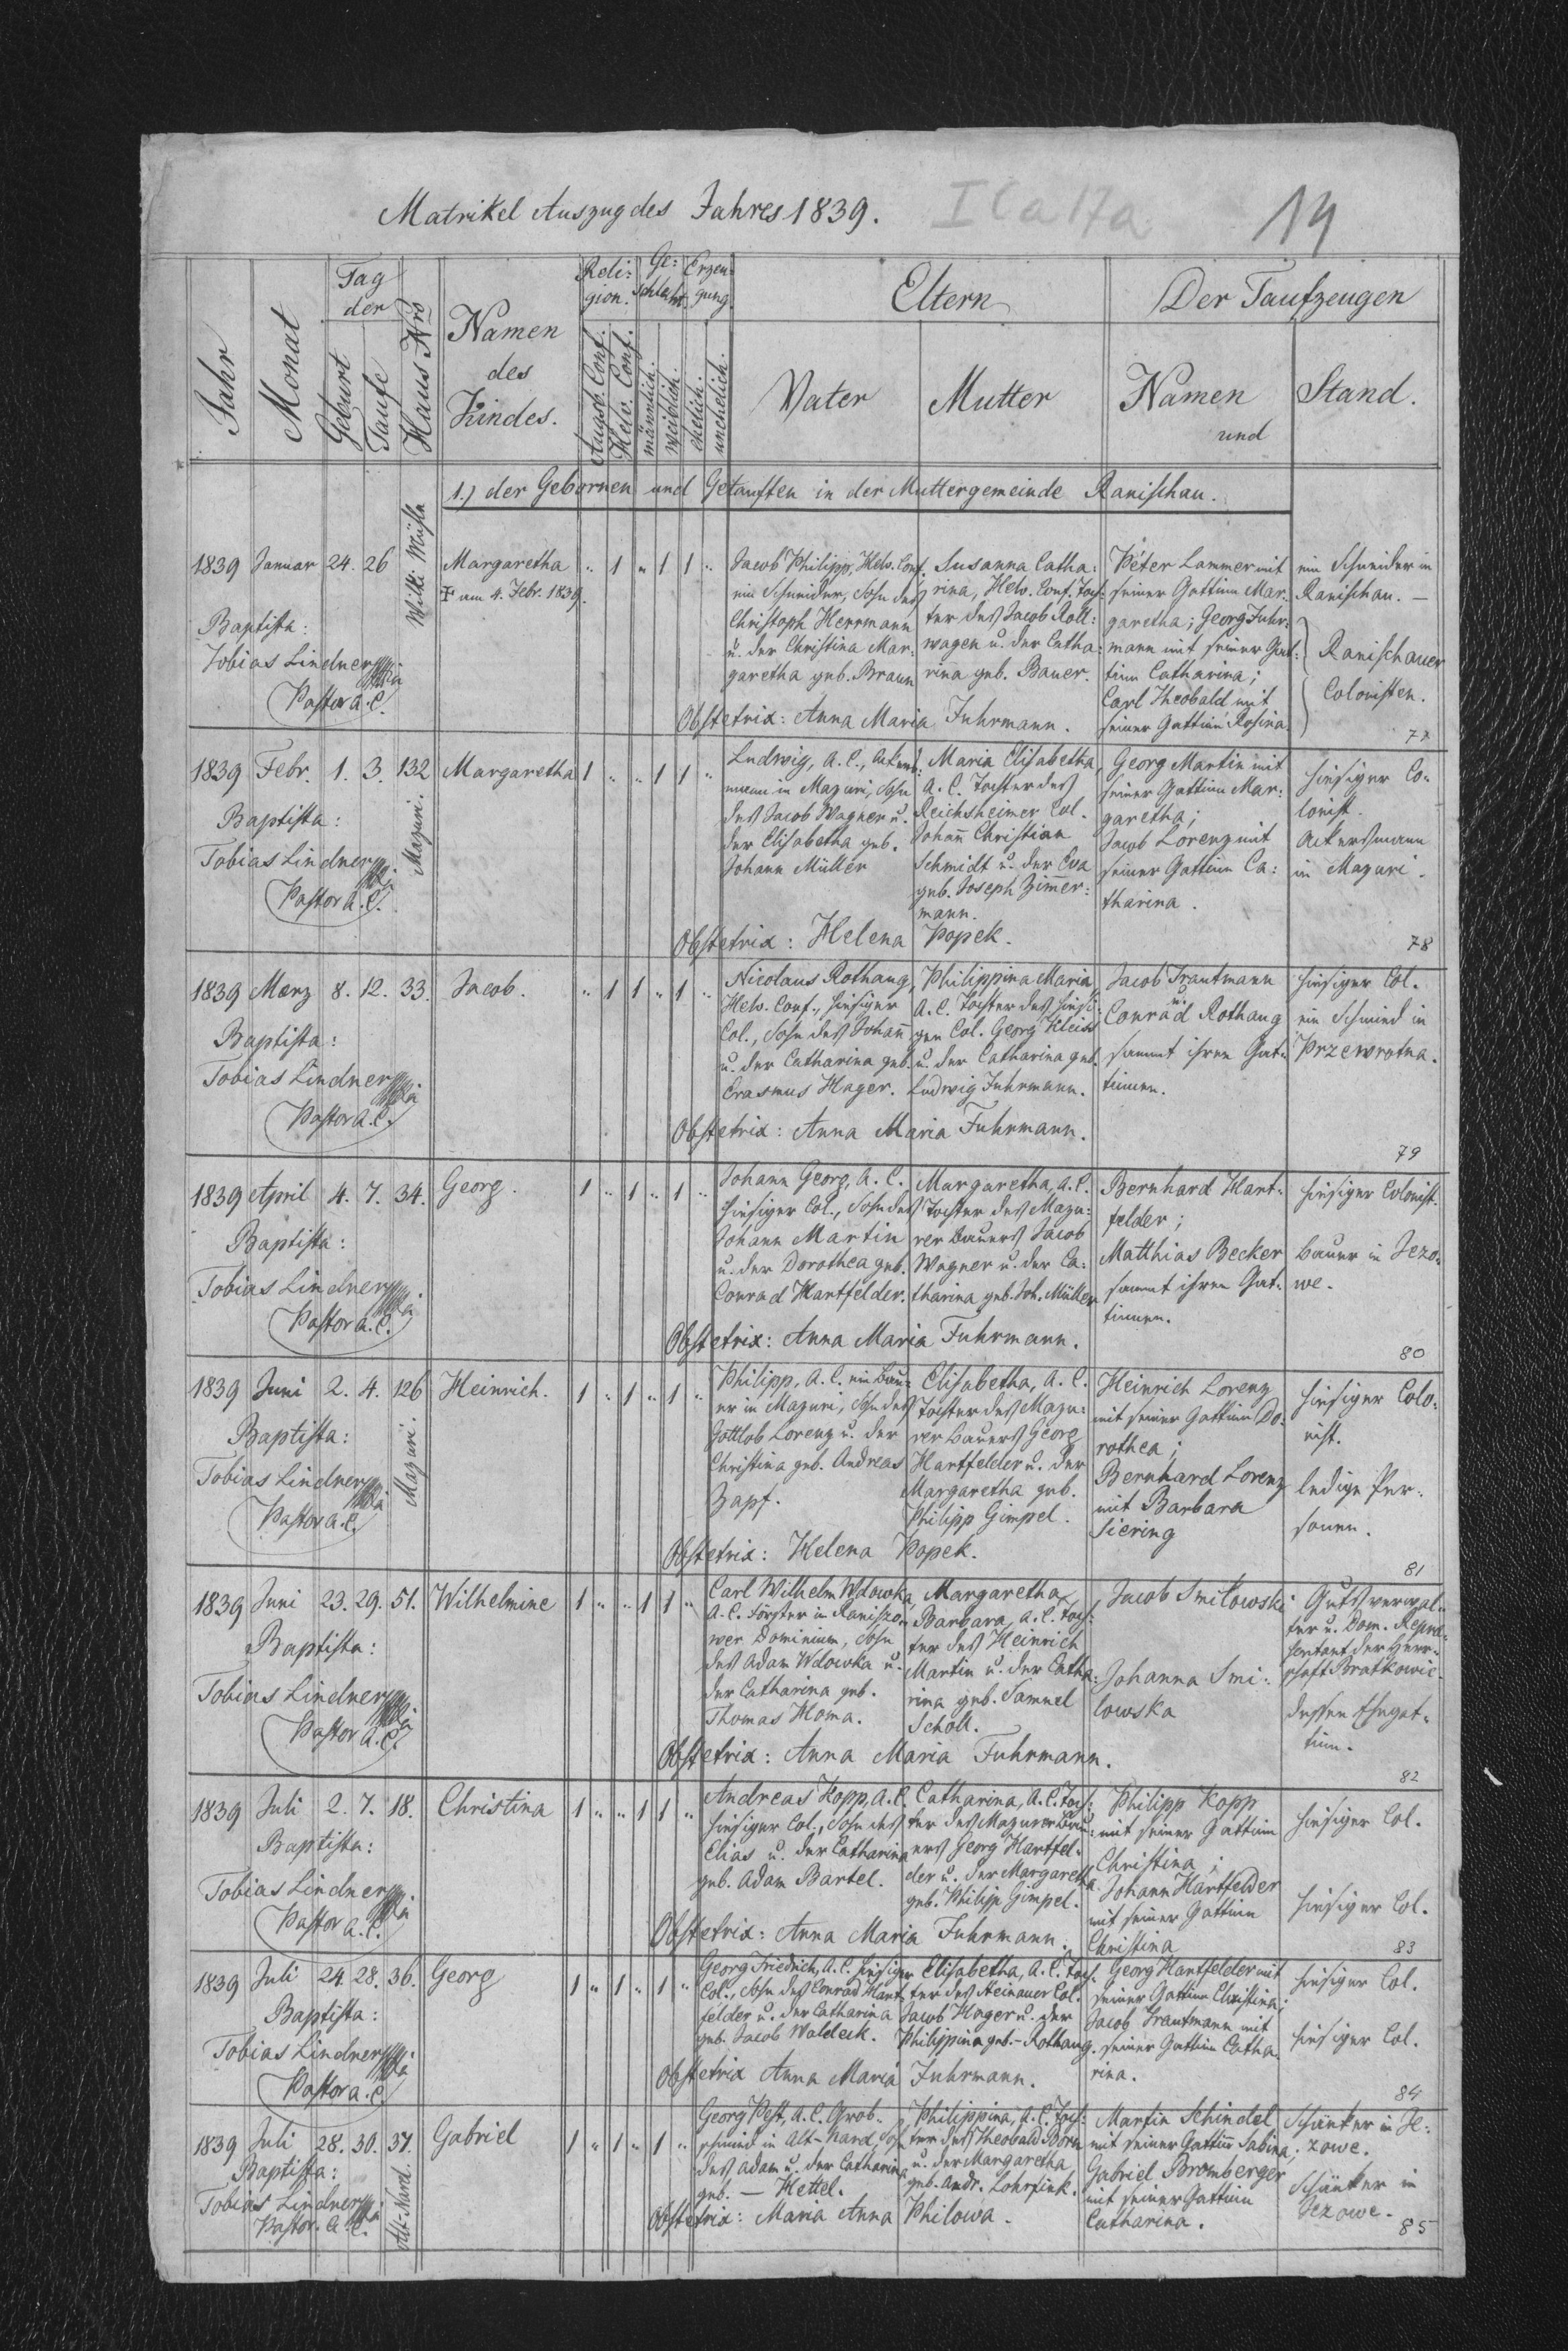 Matrikel Auszug des Jahres 1839.
I C a 17a
14
Jahr
Monat
Tag
der
Geburt
Taufe
Haus Nro
Namen
des
Kindes.
Reli:
gion.
Augsb. Conf.
Helv. Conf.
Ge:
schlecht
männlich.
weiblich.
Erzeu:
gung
ehelich.
unehelich.
Eltern
Vater
Mutter
Der Taufzeugen
Namen
und
Stand.
1.) der Gebornen und Getauften in der Muttergemeinde Ranischau.
1839 Januar 24. 26
Baptista:
Tobias Lindner
Pastor A.C.
Margaretha
† am 4. Febr. 1839.
" 1 " 1 1 "
Jacob Philipp, Helv. Conf.
ein Schneider, Sohn des
Christoph Herrmann
u. der Christina Mar:
garetha geb. Braun
Susanna Catha:
rina, Helv. Conf. Toch:
ter des Jacob Roll:
wagen u. der Catha:
rina geb. Bauer.
Peter Lammer mit
seiner Gattinn Mar:
garetha; Georg Fuhr:
mann mit seiner Gat:
tinn Catharina;
Carl Theobald mit
seiner Gattinn Rosina.
ein Schneider in
Ranischau. —
Ranischauer
Colonisten.
Obstetrix: Anna Maria Fuhrmann.
77
1839 Febr. 1. 3. 132
Mazuri.
Baptista:
Tobias Lindner
Pastor A.C.
Margaretha
1 " " 1 1 "
Ludwig, A. C., Ackers:
mann in Mazuri, Sohn
des Jacob Wagner u.
der Elisabetha geb.
Johann Müller
Maria Elisabetha,
A. C. Tochter des
Reichsheimer Col.
Johann Christian
Schmidt u. der Eva
geb. Joseph Zimmer:
mann.
Georg Martin mit
seiner Gattinn Mar:
garetha;
Jacob Lorenz mit
seiner Gattinn Ca:
tharina.
hiesiger Co:
lonist.
Ackersmann
in Mazuri.
Obstetrix: Helena Popek.
78
1839 Maerz 8. 12. 33.
Baptista:
Tobias Lindner
Pastor A.C.
Jacob.
" 1 1 " 1 "
Nicolaus Rothaug,
Helv. Conf., hiesiger
Col., Sohn des Johann
u. der Catharina geb.
Erasmus Hager.
Philippina Maria,
A. C. Tochter des hiesi:
gen Col. Georg Kleiss
u. der Catharina geb.
Ludwig Fuhrmann.
Jacob Trautmann
u.
Conrad Rothaug
sammt ihren Gat:
tinnen.
hiesiger Col.
ein Schmied in
Przewrotna.
Obstetrix: Anna Maria Fuhrmann.
79
1839 April 4. 7. 34.
Baptista:
Tobias Lindner
Pastor A.C.
Georg.
1 " 1 " 1 "
Johann Georg, A. C.
hiesiger Col., Sohn des
Johann Martin
u. der Dorothea geb.
Conrad Hartfelder.
Margaretha, A. C.
Tochter des Mazu:
rer Bauers Jacob
Wagner u. der Ca:
tharina geb. Joh. Müller
Bernhard Hart:
felder;
Matthias Becker
sammt ihren Gat:
tinnen.
hiesiger Colonist.
Bauer in Jezo:
we.
Obstetrix: Anna Maria Fuhrmann.
80
1839 Juni 2. 4. 126
Mazuri.
Baptista:
Tobias Lindner
Pastor A.C.
Heinrich.
1 " 1 " 1 "
Philipp, A. C. ein Bau:
er in Mazuri, Sohn des
Gottlob Lorenz u. der
Christina geb. Andreas
Zapf.
Elisabetha, A. C.
Tochter des Mazu:
rer Bauers Georg
Hartfelder u. der
Margaretha geb.
Philipp Gimpel.
Heinrich Lorenz
mit seiner Gattinn Do:
rothea;
Bernhard Lorenz
mit Barbara
Siering
hiesiger Colo:
nist.
ledige Per:
sonen.
Obstetrix: Helena Popek.
81
1839 Juni 23. 29. 51.
Baptista:
Tobias Lindner
Pastor A.C.
Wilhelmine
1 " " 1 1 "
Carl Wilhelm Wdowka,
A. C. Förster im Raniszo:
wer Dominium, Sohn
des Adam Wdowka u.
der Catharina geb.
Thomas Homa.
Margaretha
Barbara, A. C. Toch:
ter des Heinrich
Martin u. der Catha:
rina geb. Samuel
Scholl.
Jacob Smilowski
Johanna Smi:
lowska
Gutsverwal:
ter u. Dom. Reprä:
sentant der Herr:
schaft Bratkowic.
dessen Ehegat:
tinn.
Obstetrix: Anna Maria Fuhrmann.
82
1839 Juli 2. 7. 18.
Baptista:
Tobias Lindner
Pastor A.C.
Christina
1 " " 1 1 "
Andreas Kopp, A. C.
hiesiger Col., Sohn des
Elias u. der Catharina
geb. Adam Bartel.
Catharina, A. C. Toch:
ter des Mazurer Bau:
ers Georg Hartfel:
der u. der Margaretha
geb. Philipp Gimpel.
Philipp Kopp
mit seiner Gattinn
Christina;
Johann Hartfelder
mit seiner Gattinn
Christina
hiesiger Col.
hiesiger Col.
Obstetrix: Anna Maria Fuhrmann.
83
1839 Juli 24. 28. 36.
Baptista:
Tobias Lindner
Pastor A.C.
Georg
1 " 1 " 1 "
Georg Friedrich, A. C. hiesiger
Col., Sohn des Conrad Hart:
felder u. der Catharina
geb. Jacob Waldeck.
Elisabetha, A. C. Toch:
ter des Steinauer Col.
Jacob Hager u. der
Philippina geb. — Rothaug.
Georg Hartfelder mit
seiner Gattinn Christina;
Jacob Trautmann mit
seiner Gattinn Catha:
rina.
hiesiger Col.
hiesiger Col.
Obstetrix Anna Maria Fuhrmann.
84
1839 Juli 28. 30. 37.
Alt-Nard.
Baptista:
Tobias Lindner
Pastor A. C.
Gabriel
1 " 1 " 1 "
Georg Pest, A. C. Grob:
schmied in Alt-Nard, Sohn
des Adam u. der Catharina
geb. — Hettel.
Philippina, A. C. Toch:
ter des Theobald Born
u. der Margaretha
geb. Andr. Lohrfink.
Martin Schindel
mit seiner Gattinn Sabina;
Gabriel Bromberger
mit seiner Gattinn
Catharina.
Schänker in Je:
zowe.
Schänker in
Jezowe.
Obstetrix: Maria Anna Philowa.
85